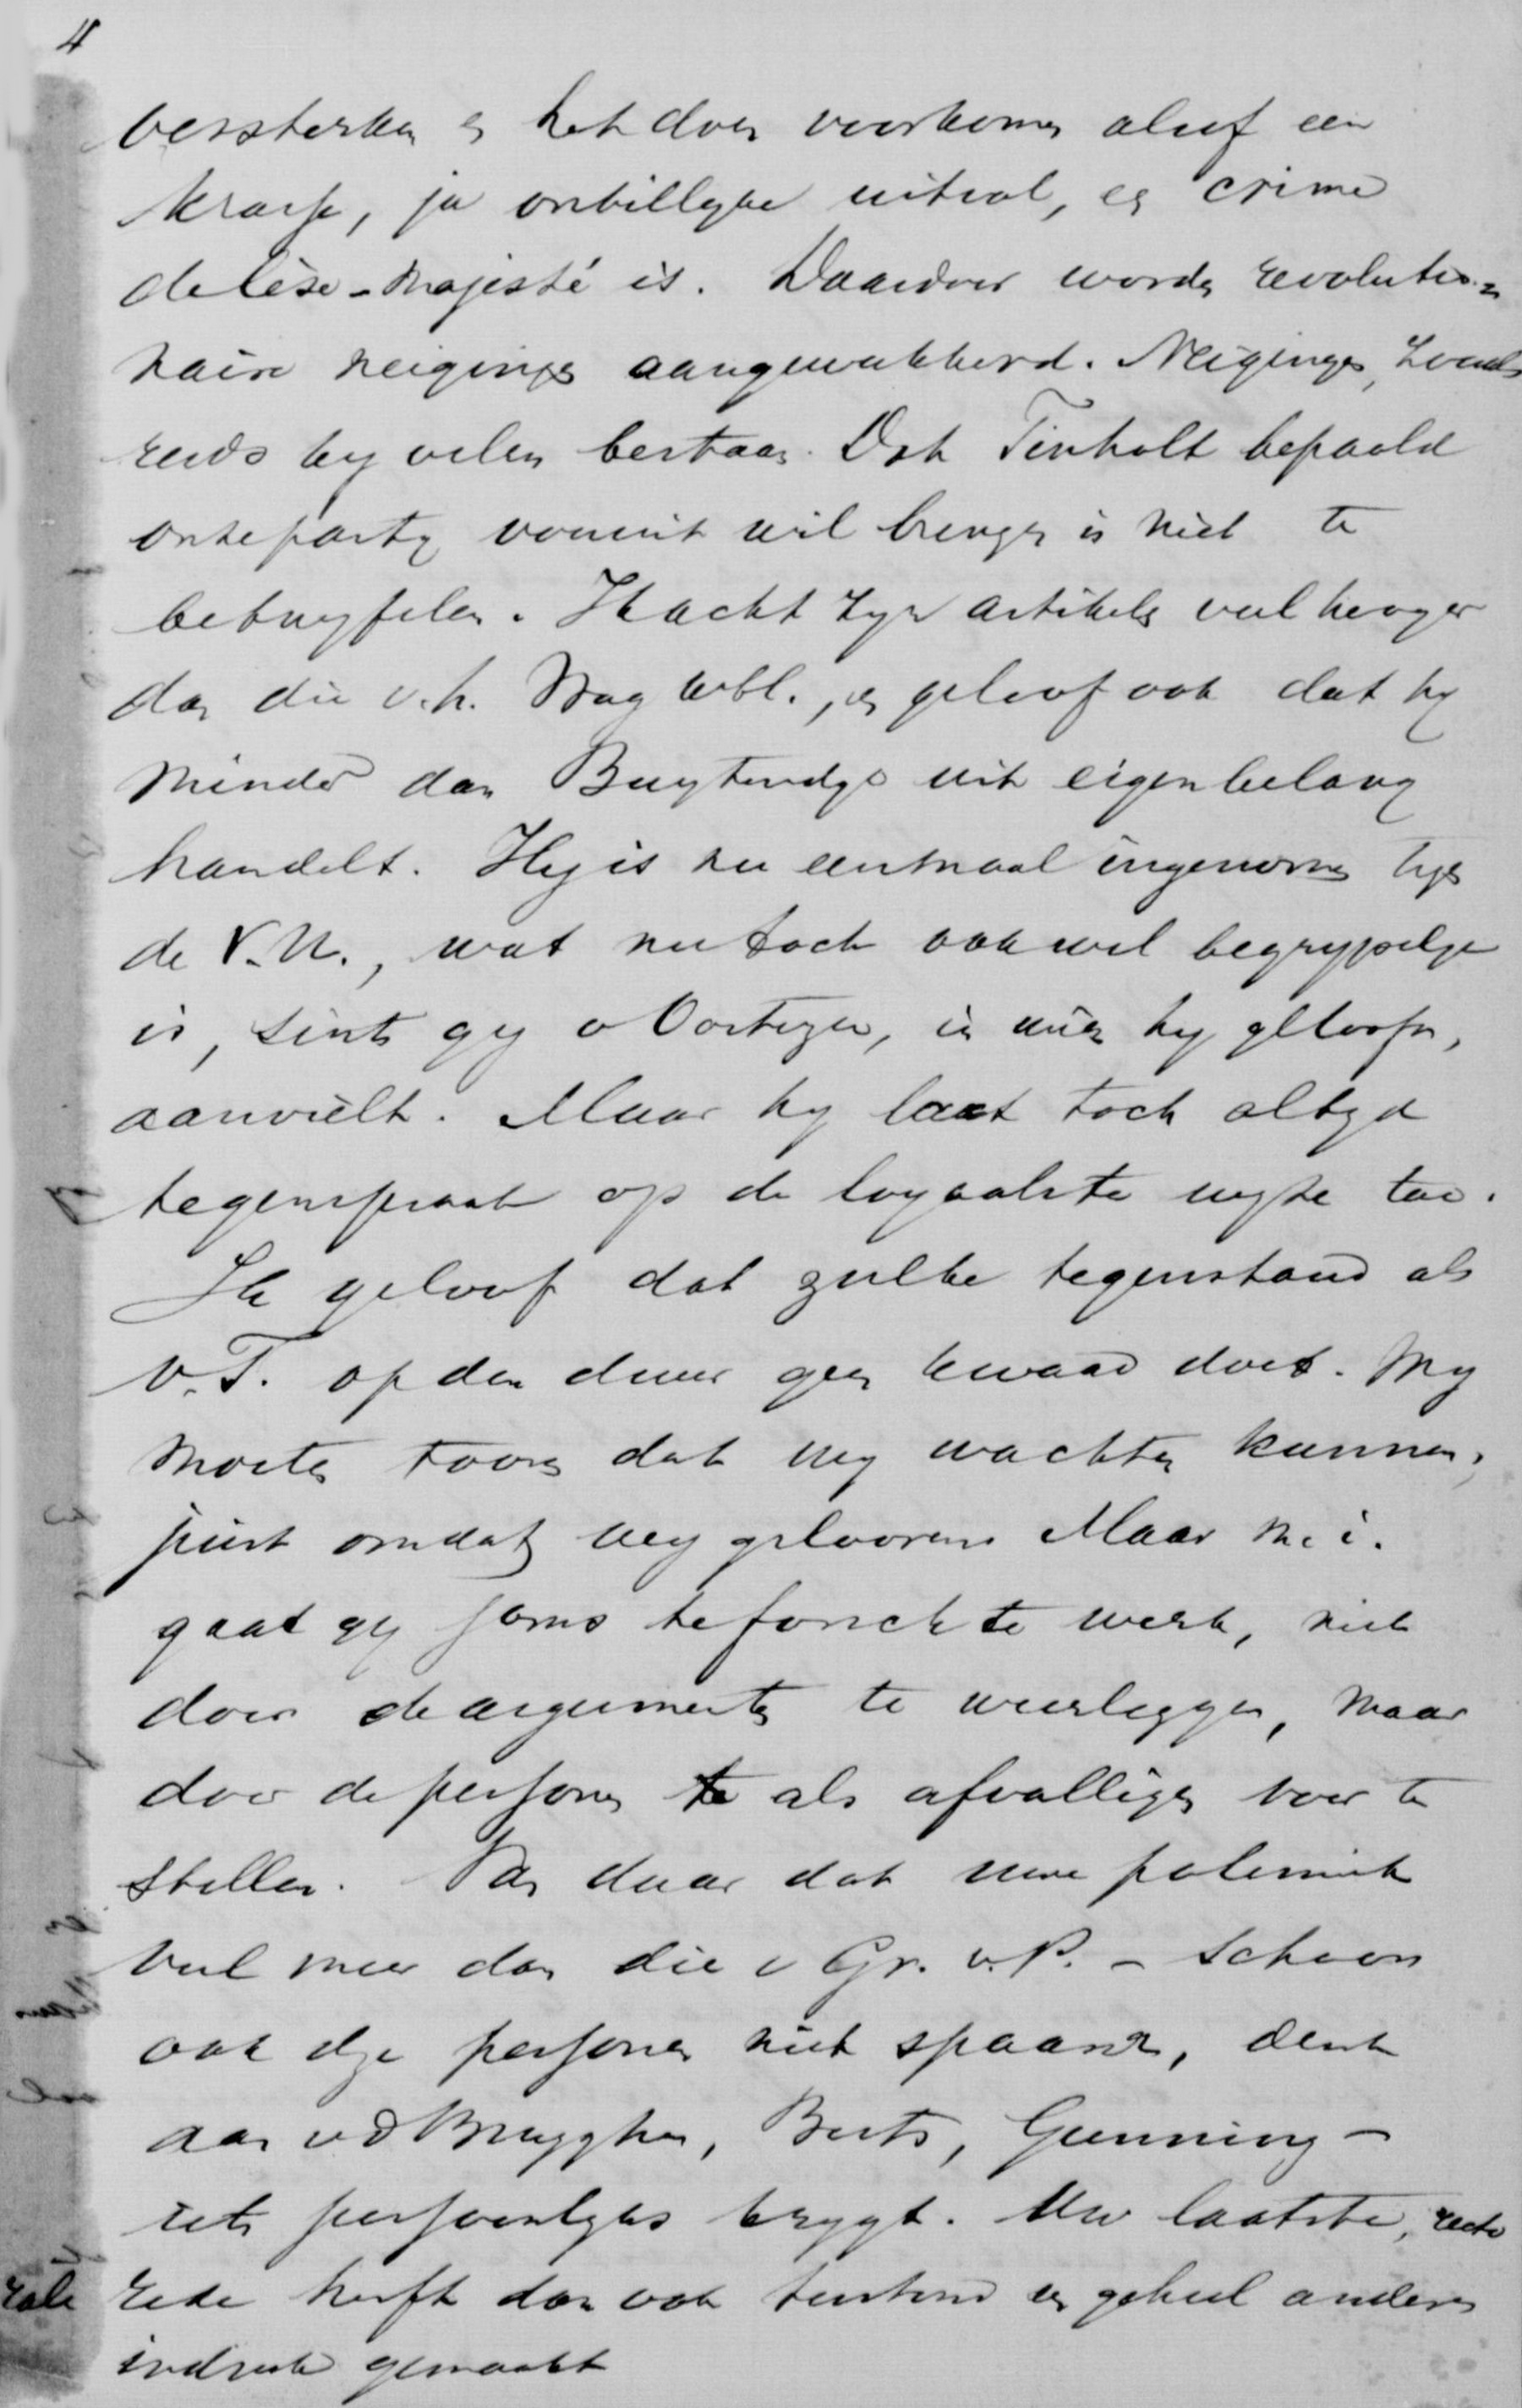 4
versterken en het doen voorkomen alsof een
krasse, ja onbillyke uitval, en crime
de lèse-Majesté is. Daardoor worden revolutio=
naire neigingen aangewakkerd. Neigingen,
reeds by velen bestaan. Dat Tinholt bepaald
onze party vooruit wil brengen is niet te
betwyfelen. Ik acht zyn artikels veel hooger
dan die v. h. Wag wbl., en geloof ook dat hy
minder dan Buytendyk uit eigenbelang
handelt. Hy is nu eenmaal ingenomen tegen
de V.U., wat nu toch ook wel begrypelyk
is, sints gy v Oosterzee, in wien hy gelooft,
aanvielt. Maar hy laat toch altyd
tegenspraak op de loyaalste wyze toe.
Ik geloof dat zulke tegenstand als
v. T. op den duur geen kwaad doet. Wy
moeten toonen dat wy wachten kunnen,
juist omdat wy gelooven. Maar m. i.
gaat gy soms te forsch te werk, niet
door de argumenten te weerleggen, maar
door de personen te als afvalligen voor te
stellen. Van daar dat uwe polemiek
veel meer dan die v Gr. v. P. - schoon
ook die personen niet spaarde, denk
aan v d Brugghen, Beets, Gunning -
iets persoonlyks krygt. Uw laatste,
rede heeft dan ook an geheel anderen
indruk gemaakt